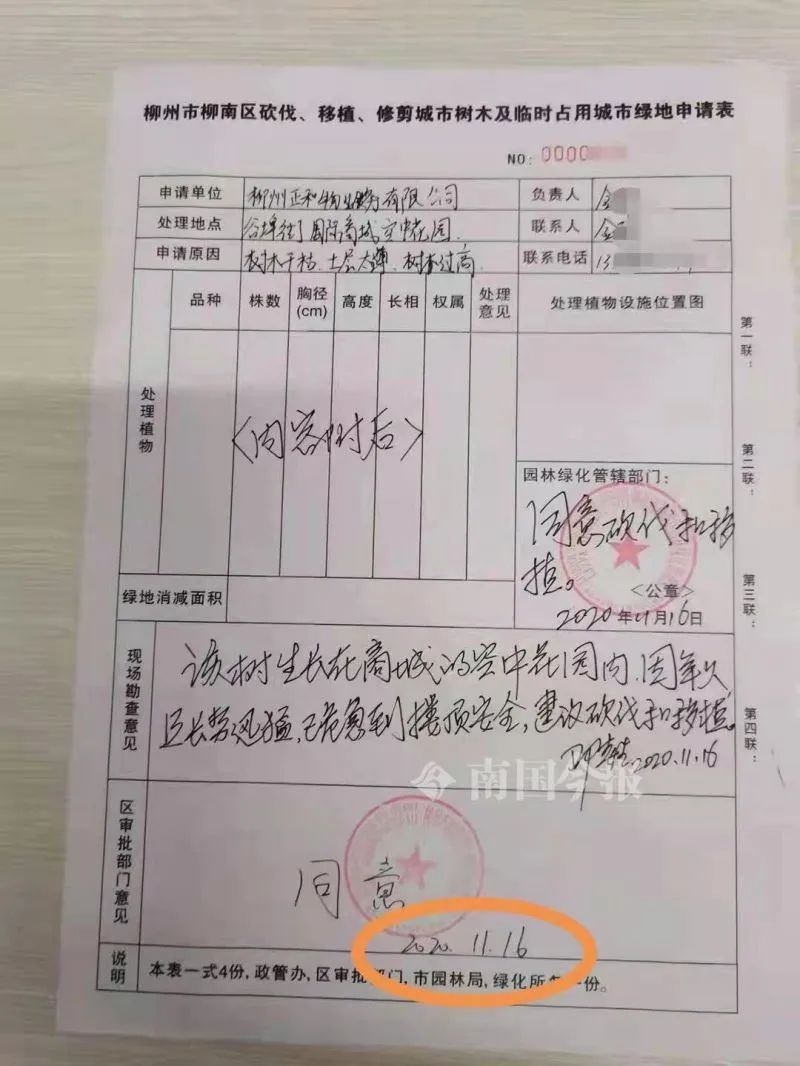 柳州市柳南区砍伐、移植、修剪城市树木及临时占用城市绿地申请表
NO: 0000
申请单位 柳州正和物业服务有限公司 负责人 金
处理地点 谷埠街国际商城空中花园. 联系人 金
申请原因 树木干枯.土层太薄、树木过高. 联系电话 13
处理植物 品种 株数 胸径(cm) 高度 长相 权属 处理意见 处理植物设施位置图
<内容附后>
园林绿化管辖部门:
同意砍伐和移
植。
<公章>
2020年11月16日
绿地消减面积
现场勘查意见
该树生长在商城的空中花园内.因年久
且长势迅猛,已危急到楼顶安全,建议砍伐和移植。
2020.11.16
南国今报
区审批部门意见
同意
2020.11.16
说明 本表一式4份,政管办,区审批部门,市园林局,绿化所各一份。
第一联:
第二联:
第三联:
第四联: